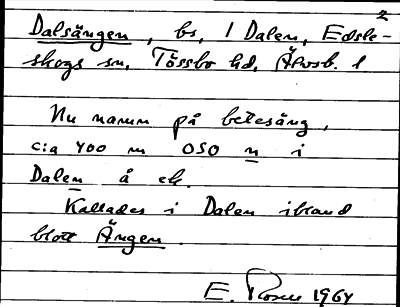 2
Dalsängen, bs, 1 Dalen, Edsle-
skogs sn, Tössbo hd, Älvsb. l
Nu namn på betesäng,
c:a 400 m OSO n i
Dalen å ek.
Kallades i Dalen ibland
blott Ängen.
E. Rosen 1964